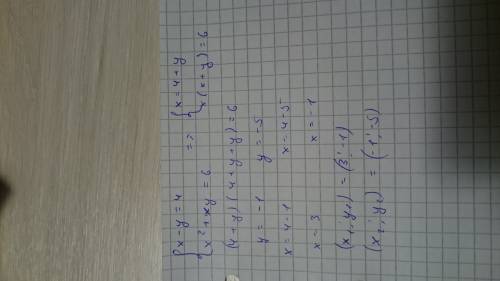 { x - y = 4 => { x = 4 + y
{ x² + xy = 6 { x(x + y) = 6
(4 + y)(4 + y + y) = 6
y = -1 y = -5
x = 4 - 1 x = 4 - 5
x = 3 x = -1
(x₁; y₁) = (3; -1)
(x₂; y₂) = (-1; -5)